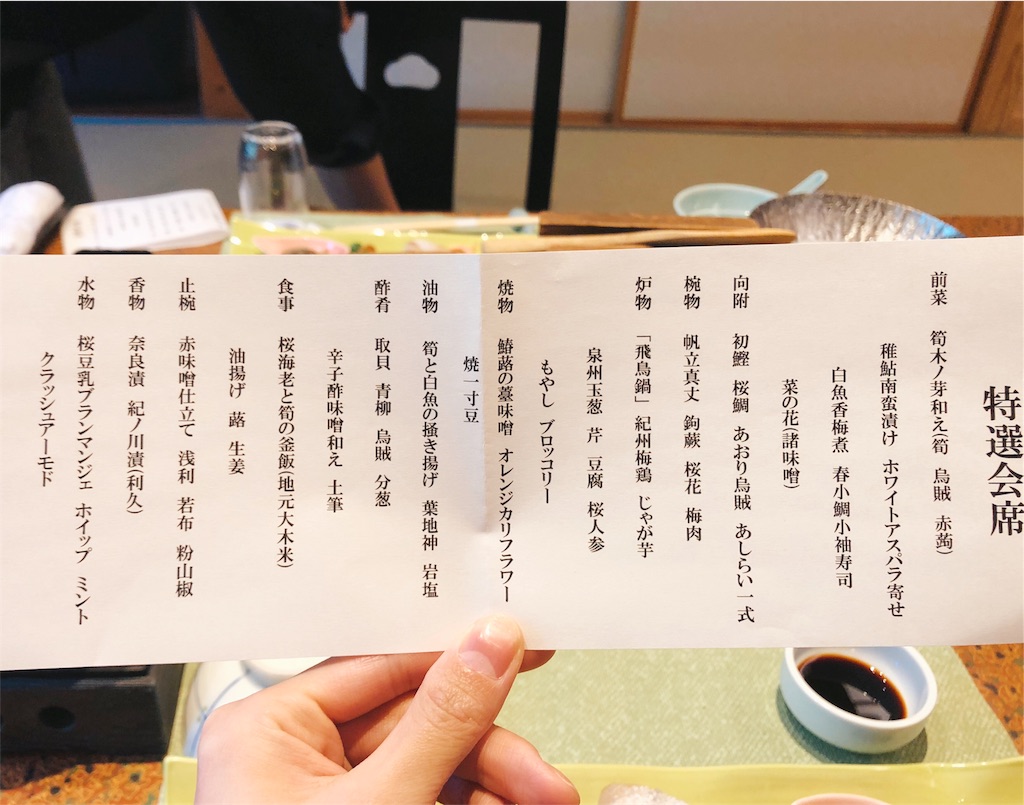 特選会席
前菜 筍木ノ芽和え(筍 烏賊 赤蒟)
稚鮎南蛮漬け ホワイトアスパラ寄せ
白魚香梅煮 春小鯛小袖寿司
菜の花(諸味噌)
向附 初鰹 桜鯛 あおり烏賊 あしらい一式
椀物 帆立真丈 鉤蕨 桜花 梅肉
炉物 「飛鳥鍋」紀州梅鶏 じゃが芋
泉州玉葱 芹 豆腐 桜人参
もやし ブロッコリー
焼物 鰆蕗の薹味噌 オレンジカリフラワー
焼一寸豆
油物 筍と白魚の掻き揚げ 葉地神 岩塩
酢肴 取貝 青柳 烏賊 分葱
辛子酢味噌和え 土筆
食事 桜海老と筍の釜飯(地元大木米)
油揚げ 蕗 生姜
止椀 赤味噌仕立て 浅利 若布 粉山椒
香物 奈良漬 紀ノ川漬(利久)
水物 桜豆乳ブランマンジェ ホイップ ミント
クラッシュアーモド